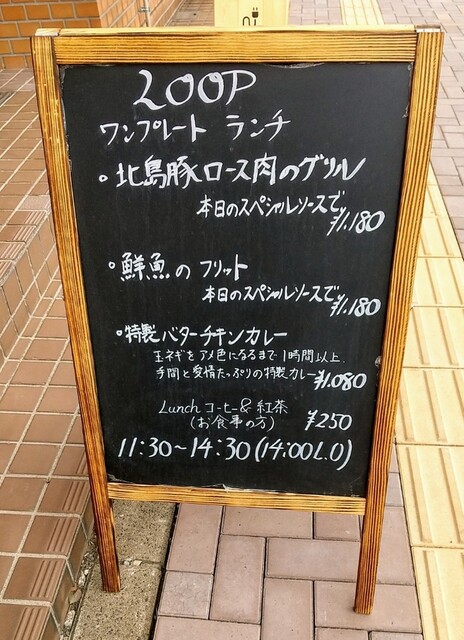 LOOP
ワンプレート ランチ
・北島豚ロース肉のグリル
本日のスペシャルソースで
¥1.180
・鮮魚の フリット
本日のスペシャルソースで
¥1.180
・特製バターチキンカレー
玉ネギをアメ色になるまで1時間以上
手間と愛情たっぷりの特製カレー ¥1.080
Lunch コーヒー&紅茶
(お食事の方) ¥250
11:30~14:30(14:00L.O)